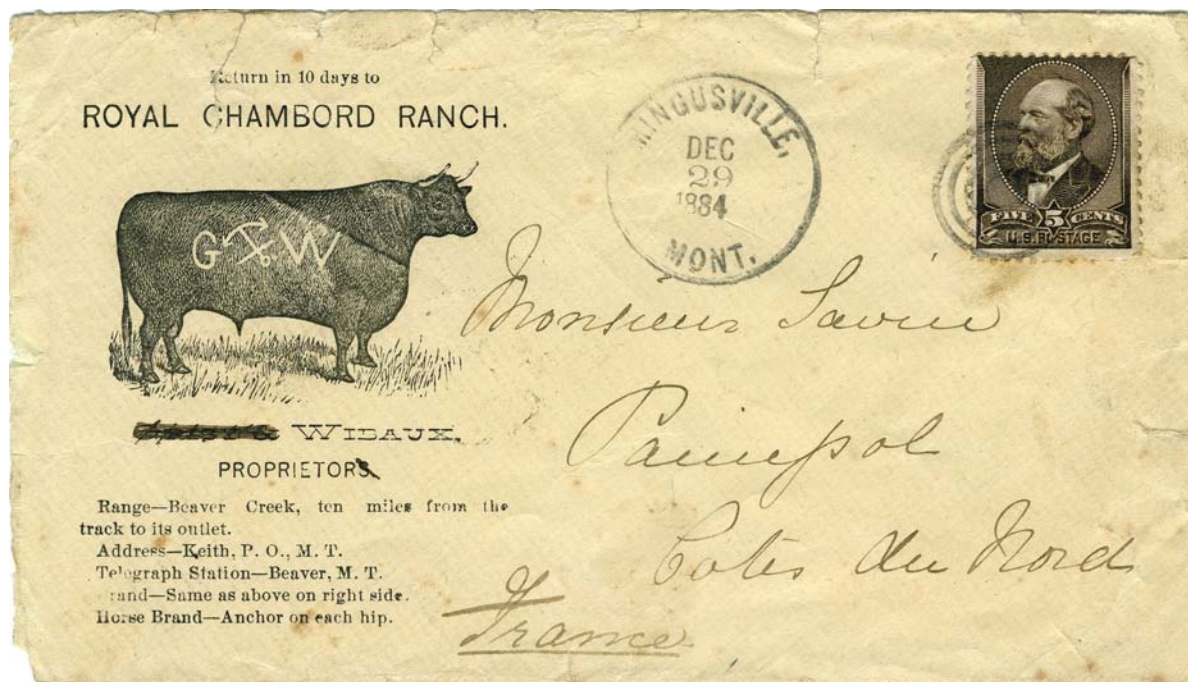 Return in 10 days to
ROYAL CHAMBORD RANCH.
G W
WIBAUX,
PROPRIETORS
Range—Beaver Creek, ten miles from the
track to its outlet.
Address—Keith, P. O., M. T.
Telegraph Station—Beaver, M. T.
Brand—Same as above on right side.
Horse Brand—Anchor on each hip.
MINGUSVILLE,
DEC
29
1884
MONT.
FIVE 5 CENTS
U.S. POSTAGE
Monsieur
Paimpol
Cotes du Nord
France